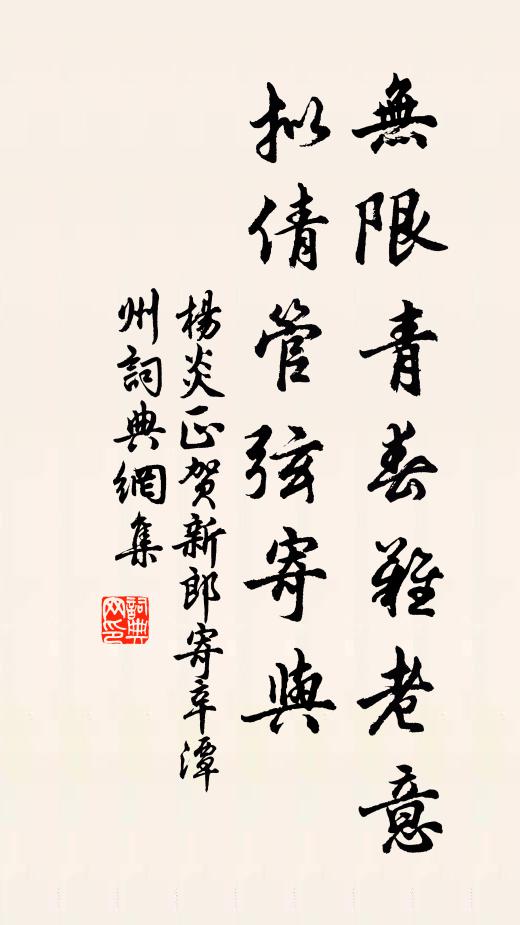 無限青春難老意
拟倩管弦寄與
楊炎正賀新郎寄辛潭
州詞典網集
詞典
网印